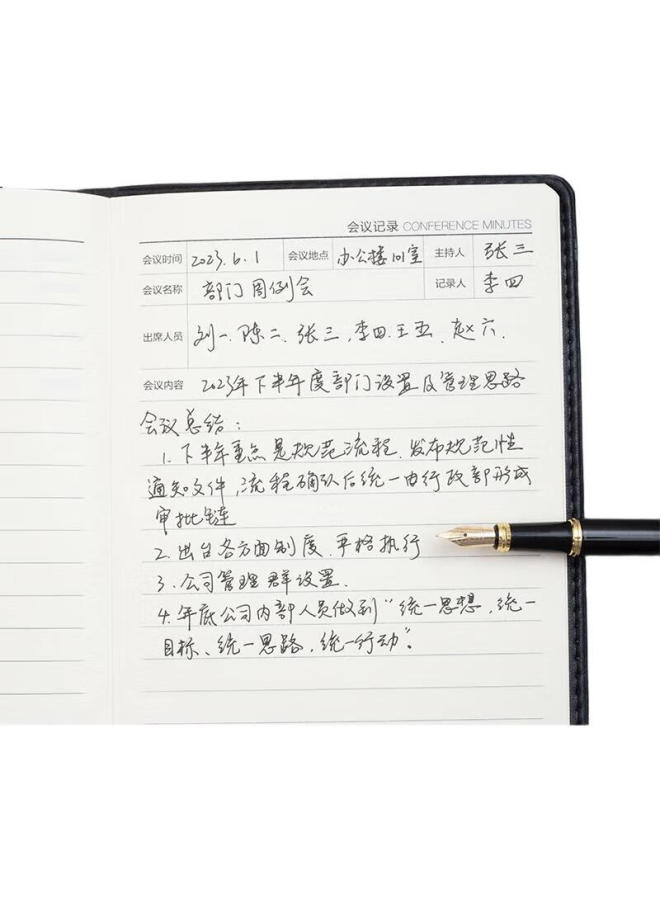 会议记录 CONFERENCE MINUTES
会议时间 2023.6.1 会议地点 办公楼101室 主持人 张三
会议名称 部门周例会 记录人 李四
出席人员 刘一、陈二、张三、李四、王五、赵六.
会议内容 2023年下半年度部门设置及管理思路
会议总结：
1. 下半年重点是规范流程，发布规范性
通知文件，流程确认后统一由行政部形成
审批链
2. 出台各方面制度，严格执行
3. 公司管理群设置.
4. 年底公司内部人员做到“统一思想，统一
目标、统一思路，统一行动”。